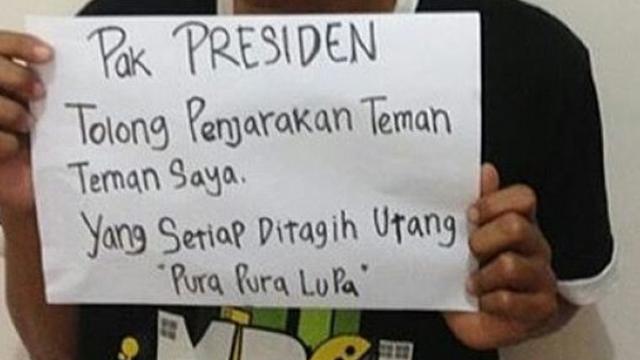 Pak PRESIDEN
Tolong Penjarakan Teman
Teman Saya.
Yang Setiap Ditagih Utang
"Pura Pura Lupa"